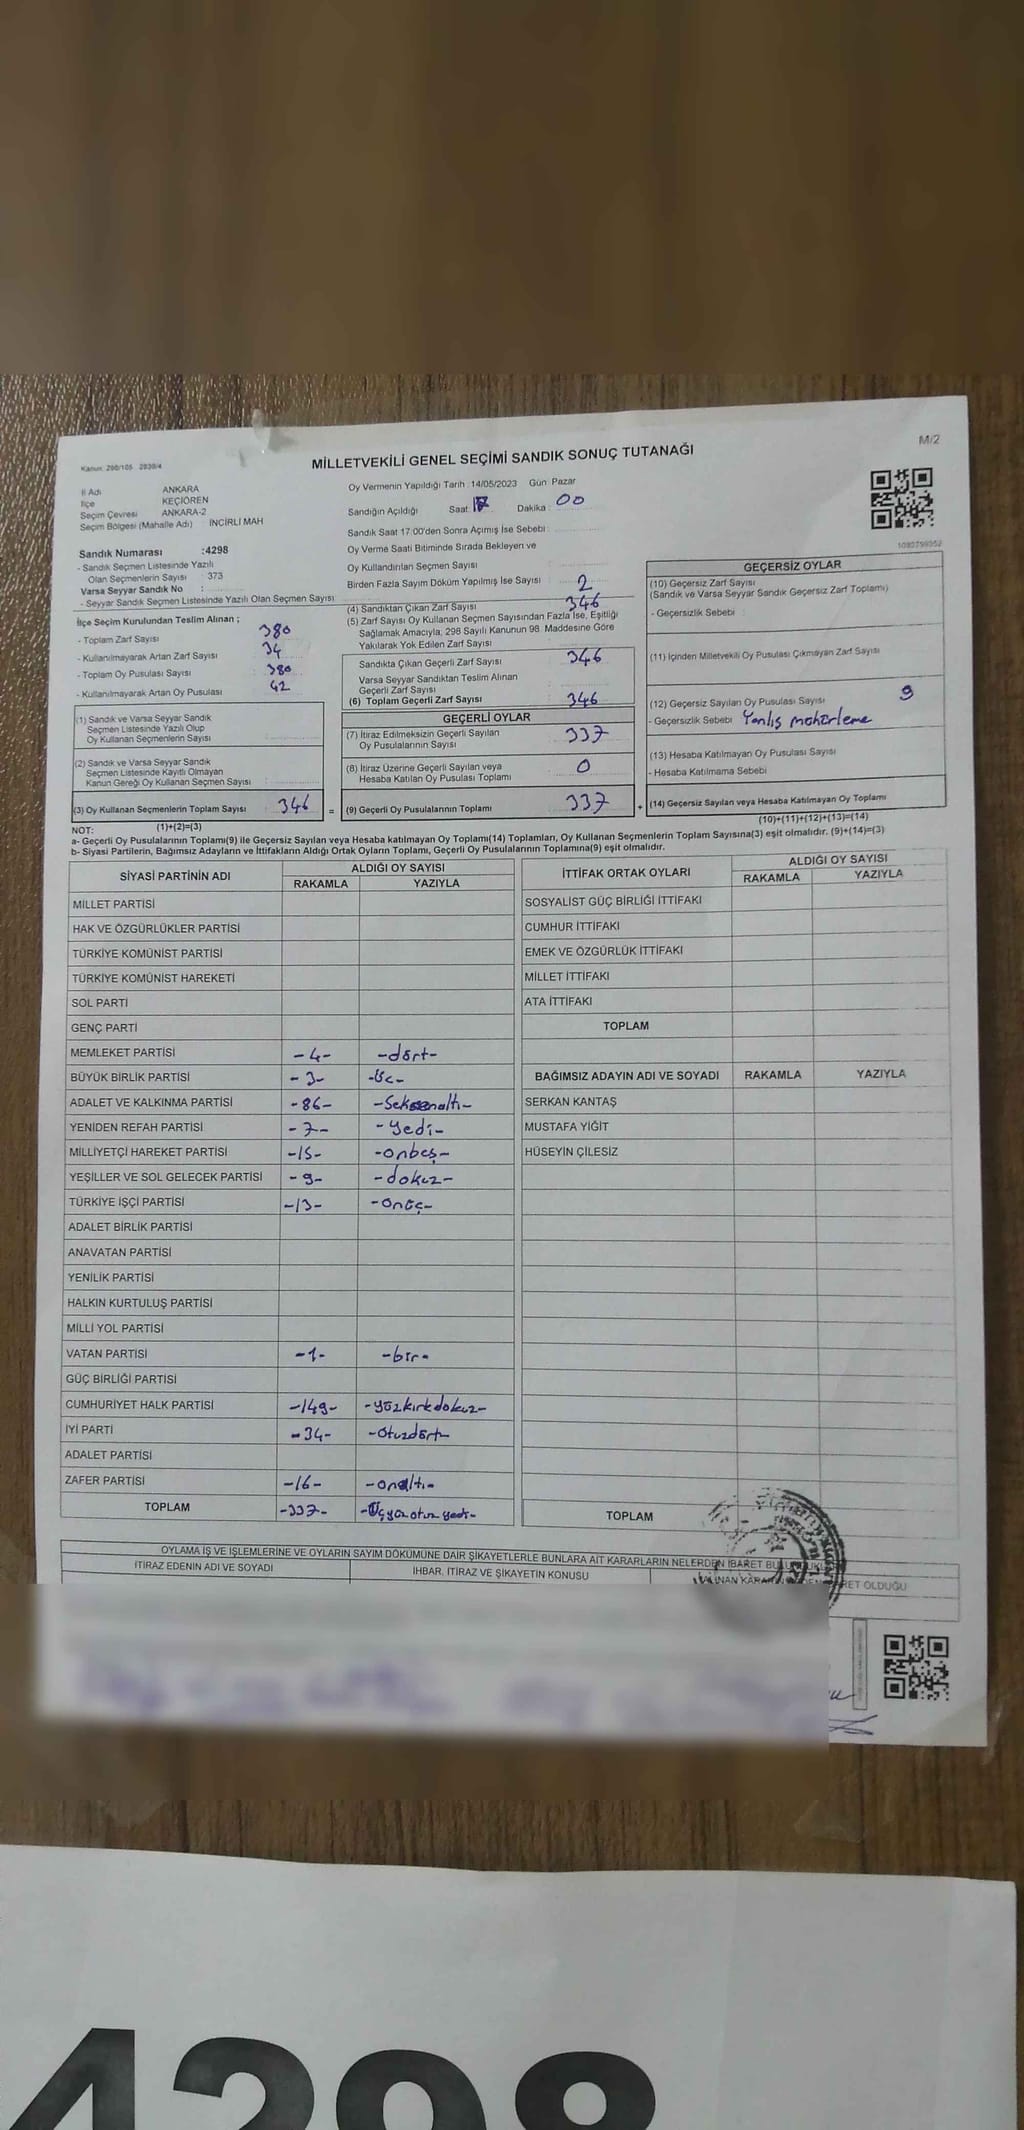 M/2
Kanun: 298/105 2839/4
MİLLETVEKİLİ GENEL SEÇİMİ SANDIK SONUÇ TUTANAĞI
İl Adı ANKARA
İlçe KEÇİÖREN
Seçim Çevresi ANKARA-2
Seçim Bölgesi (Mahalle Adı) İNCİRLİ MAH
Sandık Numarası :4298
- Sandık Seçmen Listesinde Yazılı
Olan Seçmenlerin Sayısı 373
Varsa Seyyar Sandık No :
- Seyyar Sandık Seçmen Listesinde Yazılı Olan Seçmen Sayısı
İlçe Seçim Kurulundan Teslim Alınan ;
- Toplam Zarf Sayısı 380
- Kullanılmayarak Artan Zarf Sayısı 34
- Toplam Oy Pusulası Sayısı 380
- Kullanılmayarak Artan Oy Pusulası 42
(1) Sandık ve Varsa Seyyar Sandık
Seçmen Listesinde Yazılı Olup
Oy Kullanan Seçmenlerin Sayısı
(2) Sandık ve Varsa Seyyar Sandık
Seçmen Listesinde Kayıtlı Olmayan
Kanun Gereği Oy Kullanan Seçmen Sayısı
(3) Oy Kullanan Seçmenlerin Toplam Sayısı 346 =
(1)+(2)=(3)
Oy Vermenin Yapıldığı Tarih :14/05/2023 Gün: Pazar
Sandığın Açıldığı Saat: 17 Dakika : 00
Sandık Saat 17:00'den Sonra Açımış İse Sebebi :
Oy Verme Saati Bitiminde Sırada Bekleyen ve
Oy Kullandırılan Seçmen Sayısı :
Birden Fazla Sayım Döküm Yapılmış İse Sayısı : 2
(4) Sandıktan Çıkan Zarf Sayısı : 346
(5) Zarf Sayısı Oy Kullanan Seçmen Sayısından Fazla İse, Eşitliği
Sağlamak Amacıyla; 298 Sayılı Kanunun 98. Maddesine Göre
Yakılarak Yok Edilen Zarf Sayısı
Sandıkta Çıkan Geçerli Zarf Sayısı : 346
Varsa Seyyar Sandıktan Teslim Alınan
Geçerli Zarf Sayısı
(6) Toplam Geçerli Zarf Sayısı : 346
GEÇERLİ OYLAR
(7) İtiraz Edilmeksizin Geçerli Sayılan
Oy Pusulalarının Sayısı : 337
(8) İtiraz Üzerine Geçerli Sayılan veya
Hesaba Katılan Oy Pusulası Toplamı : 0
(9) Geçerli Oy Pusulalarının Toplamı : 337 +
1082799352
GEÇERSİZ OYLAR
(10) Geçersiz Zarf Sayısı
(Sandık ve Varsa Seyyar Sandık Geçersiz Zarf Toplamı)
- Geçersizlik Sebebi :
(11) İçinden Milletvekili Oy Pusulası Çıkmayan Zarf Sayısı
(12) Geçersiz Sayılan Oy Pusulası Sayısı : 9
- Geçersizlik Sebebi Yanlış mühürleme
(13) Hesaba Katılmayan Oy Pusulası Sayısı
- Hesaba Katılmama Sebebi
(14) Geçersiz Sayılan veya Hesaba Katılmayan Oy Toplamı
(10)+(11)+(12)+(13)=(14)
NOT:
a- Geçerli Oy Pusulalarının Toplamı(9) ile Geçersiz Sayılan veya Hesaba katılmayan Oy Toplamı(14) Toplamları, Oy Kullanan Seçmenlerin Toplam Sayısına(3) eşit olmalıdır. (9)+(14)=(3)
b- Siyasi Partilerin, Bağımsız Adayların ve İttifakların Aldığı Ortak Oyların Toplamı, Geçerli Oy Pusulalarının Toplamına(9) eşit olmalıdır.
SİYASİ PARTİNİN ADI ALDIĞI OY SAYISI
RAKAMLA YAZIYLA
MİLLET PARTİSİ
HAK VE ÖZGÜRLÜKLER PARTİSİ
TÜRKİYE KOMÜNİST PARTİSİ
TÜRKİYE KOMÜNİST HAREKETİ
SOL PARTİ
GENÇ PARTİ
MEMLEKET PARTİSİ -4- -dört-
BÜYÜK BİRLİK PARTİSİ -3- -üç-
ADALET VE KALKINMA PARTİSİ -86- -Seksenaltı-
YENİDEN REFAH PARTİSİ -7- -yedi-
MİLLİYETÇİ HAREKET PARTİSİ -15- -onbeş-
YEŞİLLER VE SOL GELECEK PARTİSİ -9- -dokuz-
TÜRKİYE İŞÇİ PARTİSİ -13- -onüç-
ADALET BİRLİK PARTİSİ
ANAVATAN PARTİSİ
YENİLİK PARTİSİ
HALKIN KURTULUŞ PARTİSİ
MİLLİ YOL PARTİSİ
VATAN PARTİSİ -1- -bir-
GÜÇ BİRLİĞİ PARTİSİ
CUMHURİYET HALK PARTİSİ -149- -yüzkırkdokuz-
İYİ PARTİ -34- -otuzdört-
ADALET PARTİSİ
ZAFER PARTİSİ -16- -onaltı-
TOPLAM -337- -Üçyüzotuzyedi-
İTTİFAK ORTAK OYLARI ALDIĞI OY SAYISI
RAKAMLA YAZIYLA
SOSYALİST GÜÇ BİRLİĞİ İTTİFAKI
CUMHUR İTTİFAKI
EMEK VE ÖZGÜRLÜK İTTİFAKI
MİLLET İTTİFAKI
ATA İTTİFAKI
TOPLAM
BAĞIMSIZ ADAYIN ADI VE SOYADI RAKAMLA YAZIYLA
SERKAN KANTAŞ
MUSTAFA YİĞİT
HÜSEYİN ÇİLESİZ
TOPLAM
OYLAMA İŞ VE İŞLEMLERİNE VE OYLARIN SAYIM DÖKÜMÜNE DAİR ŞİKAYETLERLE BUNLARA AİT KARARLARIN NELERDEN İBARET
İTİRAZ EDENİN ADI VE SOYADI İHBAR, İTİRAZ VE ŞİKAYETİN KONUSU OLDUĞU
4298